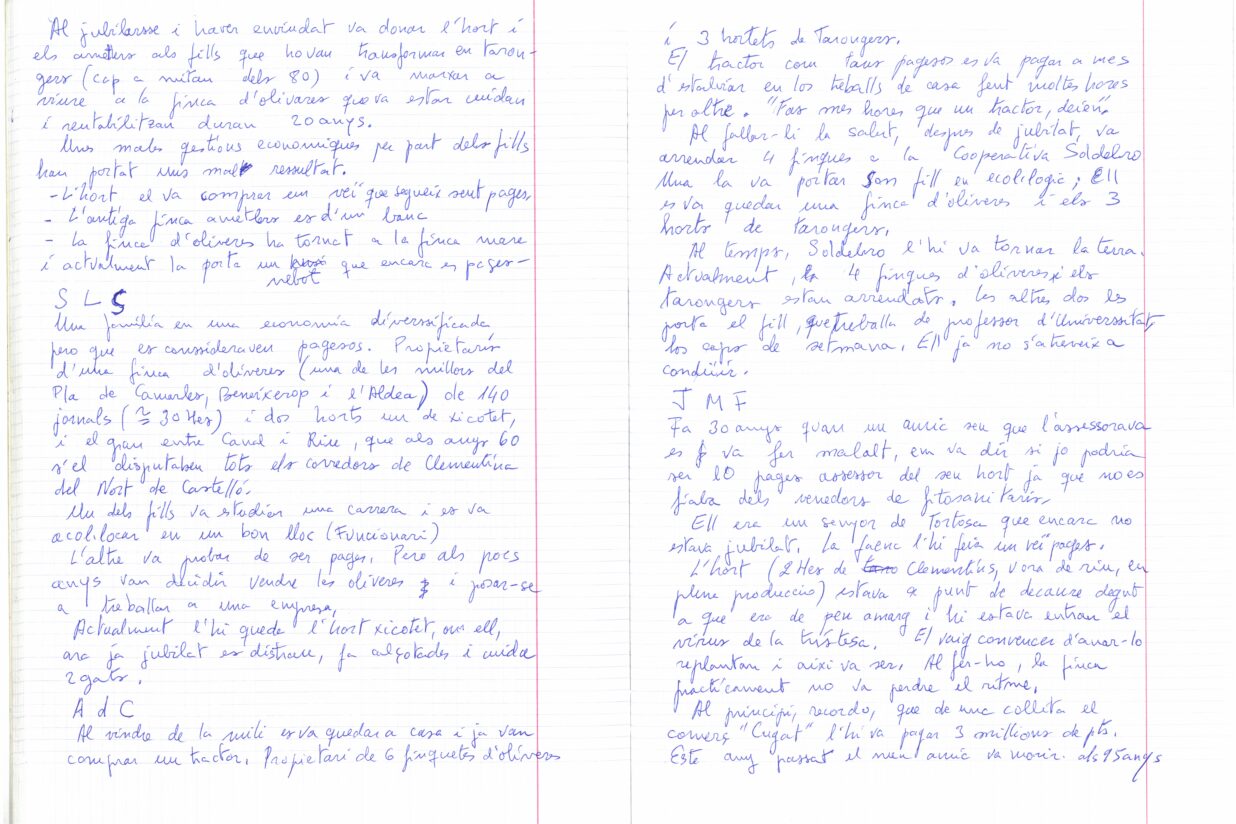 Al jubilarsse i haver enviudat va donar l'hort i
els ametlers als fills que ho van transformar en taron-
gers (cap a mitan dels 80) i va marxar a
viure a la finca d'olivares que va estar cuidan
i rentabilitzan duran 20 anys.
Unes males gestions economiques per part dels fills
han portat uns mals ressultat.
- L'hort el va comprar em veï que segueix sent pages,
- L'antiga finca ametlers es d'un banc
- la finca d'oliveres ha tornat a la finca mare
i actualment la porta un nebot que encara es pages-
S L S
Una familia en una economia diverssificada
pero que es consideraven pagesos. Propietaris
d'una finca d'oliveres (una de les millors del
Pla de Camarles, Beneixerop i l'Aldea) de 140
jornals (≃ 30 Hes) i dos horts un de xicotet,
i el gran entre Canal i Riu, que als anys 60
s'el disputaben tots els corredors de Clementina
del Nort de Castelló.
Un dels fills va estudiar una carrera i es va
acol.locar en un bon lloc (Funcionari)
L'altre va probar de ser pages. Pero als pocs
anys van decidir vendre les oliveres i posar-se
a treballar a una empresa,
Actualment l'hi queda l'hort xicotet, on ell,
ara ja jubilat es distrau, fa calçotades i cuida
2 gats.
A d C
Al vindre de la mili es va quedar a casa i ja van
comprar un tractor. Propietari de 6 finquetes d'oliveres
i 3 hortets de Tarongers.
El tractor com tans pagesos es va pagar a mes
d'estalviar en los treballs de casa fent moltes hores
per altre. "Fas mes hores que un tractor, deien".
Al fallar-li la salut, despues de jubilat, va
arrendar 4 finques a la Cooperativa Soldebro
Una la va portar son fill en ecolilogic; Ell
es va quedar una finca d'oliveres i els 3
horts de tarongers,
Al temps, Soldebro l'hi va tornar la terra.
Actualment, la 4 finques d'oliveres i els
tarongers estan arrendats. Les altres dos les
porta el fill, que treballa de professor d'Universsitat,
los caps de setmana. Ell ja no s'atreveix a
conduir.
J M F
Fa 30 anys quan un amic seu que l'assessorava
es va fer malalt, em va dir si jo podria
ser lo pages assessor del seu hort ja que no es
fiaba dels venedors de fitosanitaris.
Ell era un senyor de Tortosa que encara no
estava jubilat. La faena l'hi feia un veï pages.
L'hort (2 Hes de Clementins, vora de riu, en
plena produccio) estava a punt de decaure degut
a que era de peu amarg i hi estava entran el
virus de la tristesa. El vaig convencer d'anar-lo
replantan i aixi va ser. Al fer-ho, la finca
practicament no va perdre el ritme,
Al principi, recordo, que de una collita el
comerç "Cugat" l'hi va pagar 3 millions de pts.
Este any passat el meu amic va morir als 95 anys